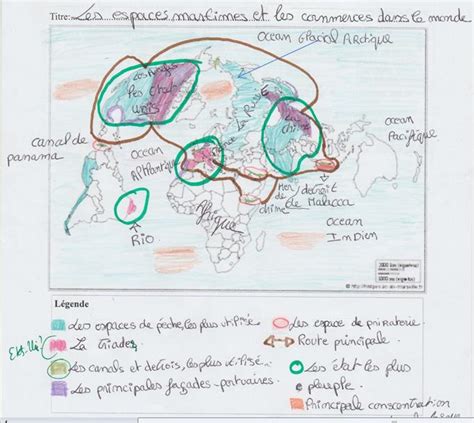 Titre: Les espaces maritimes et les commerces dans le monde
Ocean Glacial Arctique
Les
Unis
La Russie
La
chine
canal de
panama
ocean
Pacifique
ocean
Athantique
Afrique
Mer
chine
detroit
de Malacca
Rio
ocean
Indien
Légende
Les espaces de pêche, les plus utilisé.
Les espace de piraterie.
La Triade,
Route principale.
Les canals et detrois, les plus utilisé..
Les état les plus
peuple.
Les principales façades-portuaires.
Principale